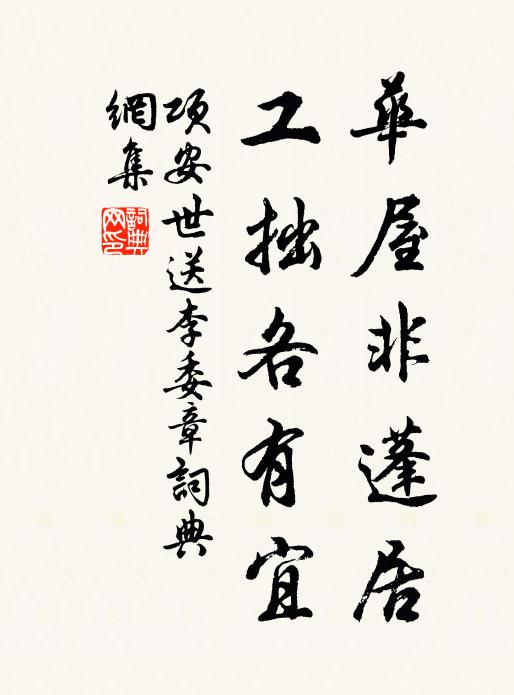 華屋非蓬居
工拙各有宜
項安世送李委章詞典
網集
詞典网印